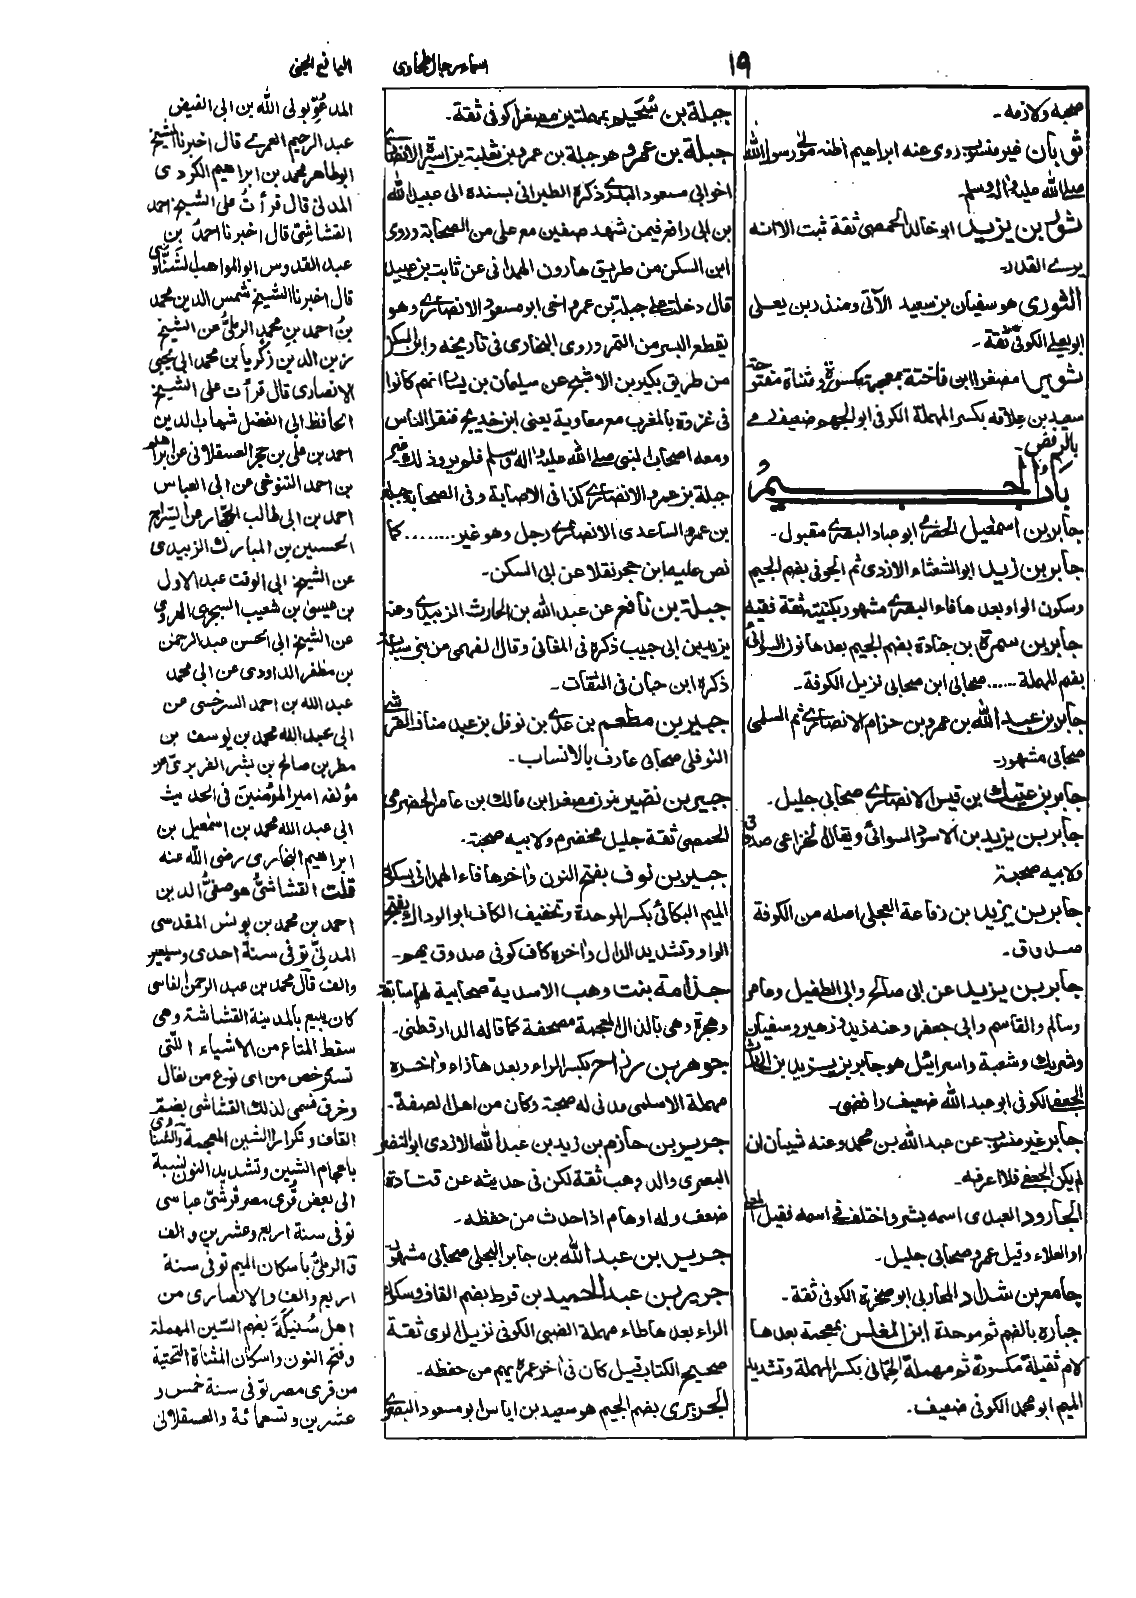 ١٩
اسماء رجال الطحاوى
اليانع الجنى
صحبه ولازمه -
ثوبان غير منسوب روى عنه ابراهيم اظنه مولى رسول الله
صلى الله عليه وآله وسلم -
ثور بن يزيد ابو خالد الحمصى ثقة ثبت الا انه
يرى القدر -
الثورى هو سفيان بن سعيد الآتى ومنذر بن يعلى
ابو يعلى الكوفى ثقة -
ثوير مصغرا ابن فاختة بمعجمة مكسورة ومثناة مفتوحة
سعيد بن علاقة بكسر المهملة الكوفى ابو الجهم ضعيف رمى
بالرفض -
باب الجيم
جابر بن اسمعيل الحضرمى ابو عباد البصرى مقبول -
جابر بن زيد ابو الشعثاء الازدى ثم الجوفى بفتح الجيم
وسكون الواو بعدها فاء البصرى مشهور بكنيته ثقة فقيه
جابر بن سمرة بن جنادة بضم الجيم بعدها نون السوائى
بضم المهملة ...... صحابى ابن صحابى نزيل الكوفة -
جابر بن عبد الله بن عمرو بن حزام الانصارى ثم السلمى
صحابى مشهور -
جابر بن عتيك بن قيس الانصارى صحابى جليل -
جابر بن يزيد بن الاسود السوائى ويقال الخزاعى صدوق
ولابيه صحبة -
جابر بن يزيد بن رفاعة العجلى اصله من الكوفة
صدوق -
جابر بن يزيد عن ابى صالح وابى الطفيل وعامر
وسالم والقاسم وابى جعفر وعنه زيد وزهير وسفيان
وشريك وشعبة واسرائيل هو جابر بن يزيد بن الحارث
الجعفى الكوفى ابو عبد الله ضعيف رافضى -
جابر غير منسوب عن عبد الله بن محمد وعنه شيبان ان
لم يكن الجعفى فلا اعرفه -
الجارود العبدى اسمه بشر واختلف فى اسمه فقيل المعلى
او العلاء وقيل عمرو صحابى جليل -
جامع بن شداد المحاربى ابو صخرة الكوفى ثقة -
جبارة بالضم ثم موحدة ابن المغلس بمعجمة بعدها
لام ثقيلة مكسورة ثم مهملة الحمانى بكسر المهملة وتشديد
الميم ابو محمد الكوفى ضعيف -
جبلة بن سحيم بمهملتين مصغرا كوفى ثقة -
جبلة بن عمرو هو جبلة بن عمرو بن ثعلبة بن اسيرة الانصارى
اخو ابى مسعود البدرى ذكره الطبرانى بسنده الى عبيد الله
بن ابى رافع فيمن شهد صفين مع على من الصحابة وروى
ابن السكن من طريق هارون الهمدانى عن ثابت بن عبيد
قال دخلت على جبلة بن عمرو اخى ابو مسعود الانصارى وهو
يقطع البسر من التمر وروى البخارى فى تاريخه وابن السكن
من طريق بكير بن الاشج عن سليمان بن يسار انهم كانوا
فى غزوة بالمغرب مع معاوية يعنى ابن خديج فنفل الناس
ومعه اصحاب النبى صلى الله عليه وآله وسلم فلم يرد ذلك غير
جبلة بن عمرو الانصارى كذا فى الاصابة وفى الصحابة جبلة
بن عمرو الساعدى الانصارى رجل وهو غير ........ كما
نص عليه ابن حجر نقلا عن ابن السكن -
جبلة بن نافع عن عبد الله بن الحارث الزبيدى وعنه
يزيد بن ابى حبيب ذكره فى المغانى وقال الفهمى من بنى سباعة
ذكره ابن حبان فى الثقات -
جبير بن مطعم بن عدى بن نوفل بن عبد مناف القرشى
النوفلى صحابى عارف بالانساب -
جبير بن نضير بنون مصغرا ابن مالك بن عامر الحضرمى
الحمصى ثقة جليل مخضرم ولابيه صحبة -
جبير بن نوف بفتح النون وآخرها فاء الهمدانى بسكون
الميم البكالى بكسر الموحدة وتخفيف الكاف ابو الوداك بفتح
الواو وتشديد الدال وآخره كاف كوفى صدوق يهم -
جذامة بنت وهب الاسدية صحابية لها سابقة
وهجرة وهى بالذال المعجمة مصحفة كما قاله الدارقطنى -
جوهر بن رزاح بكسر الراء وبعدها زاء وآخره
مهملة الاسلمى مدنى له صحبة وكان من اهل الصفة -
جرير بن حازم بن زيد بن عبد الله الازدى ابو النضر
البصرى والد وهب ثقة لكن فى حديثه عن قتادة
ضعف وله اوهام اذا حدث من حفظه -
جرير بن عبد الله بن جابر البجلى صحابى مشهور -
جرير بن عبد الحميد بن قرط بضم القاف وسكون
الراء بعدها طاء مهملة الضبى الكوفى نزيل الرى ثقة
صحيح الكتاب قيل كان فى آخر عمره يهم من حفظه -
الجريرى بضم الجيم هو سعيد بن اياس ابو مسعود البصرى
المدعو بولى الله بن ابى الفيض
عبد الرحيم العمرى قال اخبرنا الشيخ
ابو طاهر محمد بن ابراهيم الكردى
المدنى قال قرأت على الشيخ احمد
القشاشى قال اخبرنا احمد بن
عبد القدوس ابو المواهب الشناوى
قال اخبرنا الشيخ شمس الدين محمد
بن احمد بن محمد الرملى عن الشيخ
زين الدين زكريا بن محمد ابى يحيى
الانصارى قال قرأت على الشيخ
الحافظ ابى الفضل شهاب الدين
احمد بن على بن حجر العسقلانى عن ابراهيم
بن احمد التنوخى عن ابى العباس
احمد بن ابى طالب الحجار عن السراج
الحسين بن المبارك الزبيدى
عن الشيخ ابى الوقت عبد الاول
بن عيسى بن شعيب السجزى الهروى
عن الشيخ ابى الحسن عبد الرحمن
بن مظفر الداودى عن ابى محمد
عبد الله بن احمد السرخسى عن
ابى عبد الله محمد بن يوسف بن
مطر بن صالح بن بشر الفربرى عن
مؤلفه امير المؤمنين فى الحديث
ابى عبد الله محمد بن اسمعيل بن
ابراهيم البخارى رضى الله عنه
قلت القشاشى هو صفى الدين
احمد بن محمد بن يونس المقدسى
المدنى توفى سنة احدى وسبعين
والف قال محمد بن عبد الرحمن الفاسى
كان يبيع بالمدينة القشاشة وهى
سقط المتاع من الاشياء التى
تسترخص من اى نوع من نعال
وخرق فسمى لذلك القشاشى بضم
القاف وتكرار الشين المعجمة والشناوى
باعجام الشين وتشديد النون نسبة
الى بعض قرى مصر قرشى عباسى
توفى سنة اربع وعشرين والف
ق الرملى باسكان الميم توفى سنة
اربع والف والانصارى من
اهل سنيكة بضم السين المهملة
وفتح النون واسكان المثناة التحتية
من قرى مصر توفى سنة خمس و
عشرين وتسعمائة والعسقلانى